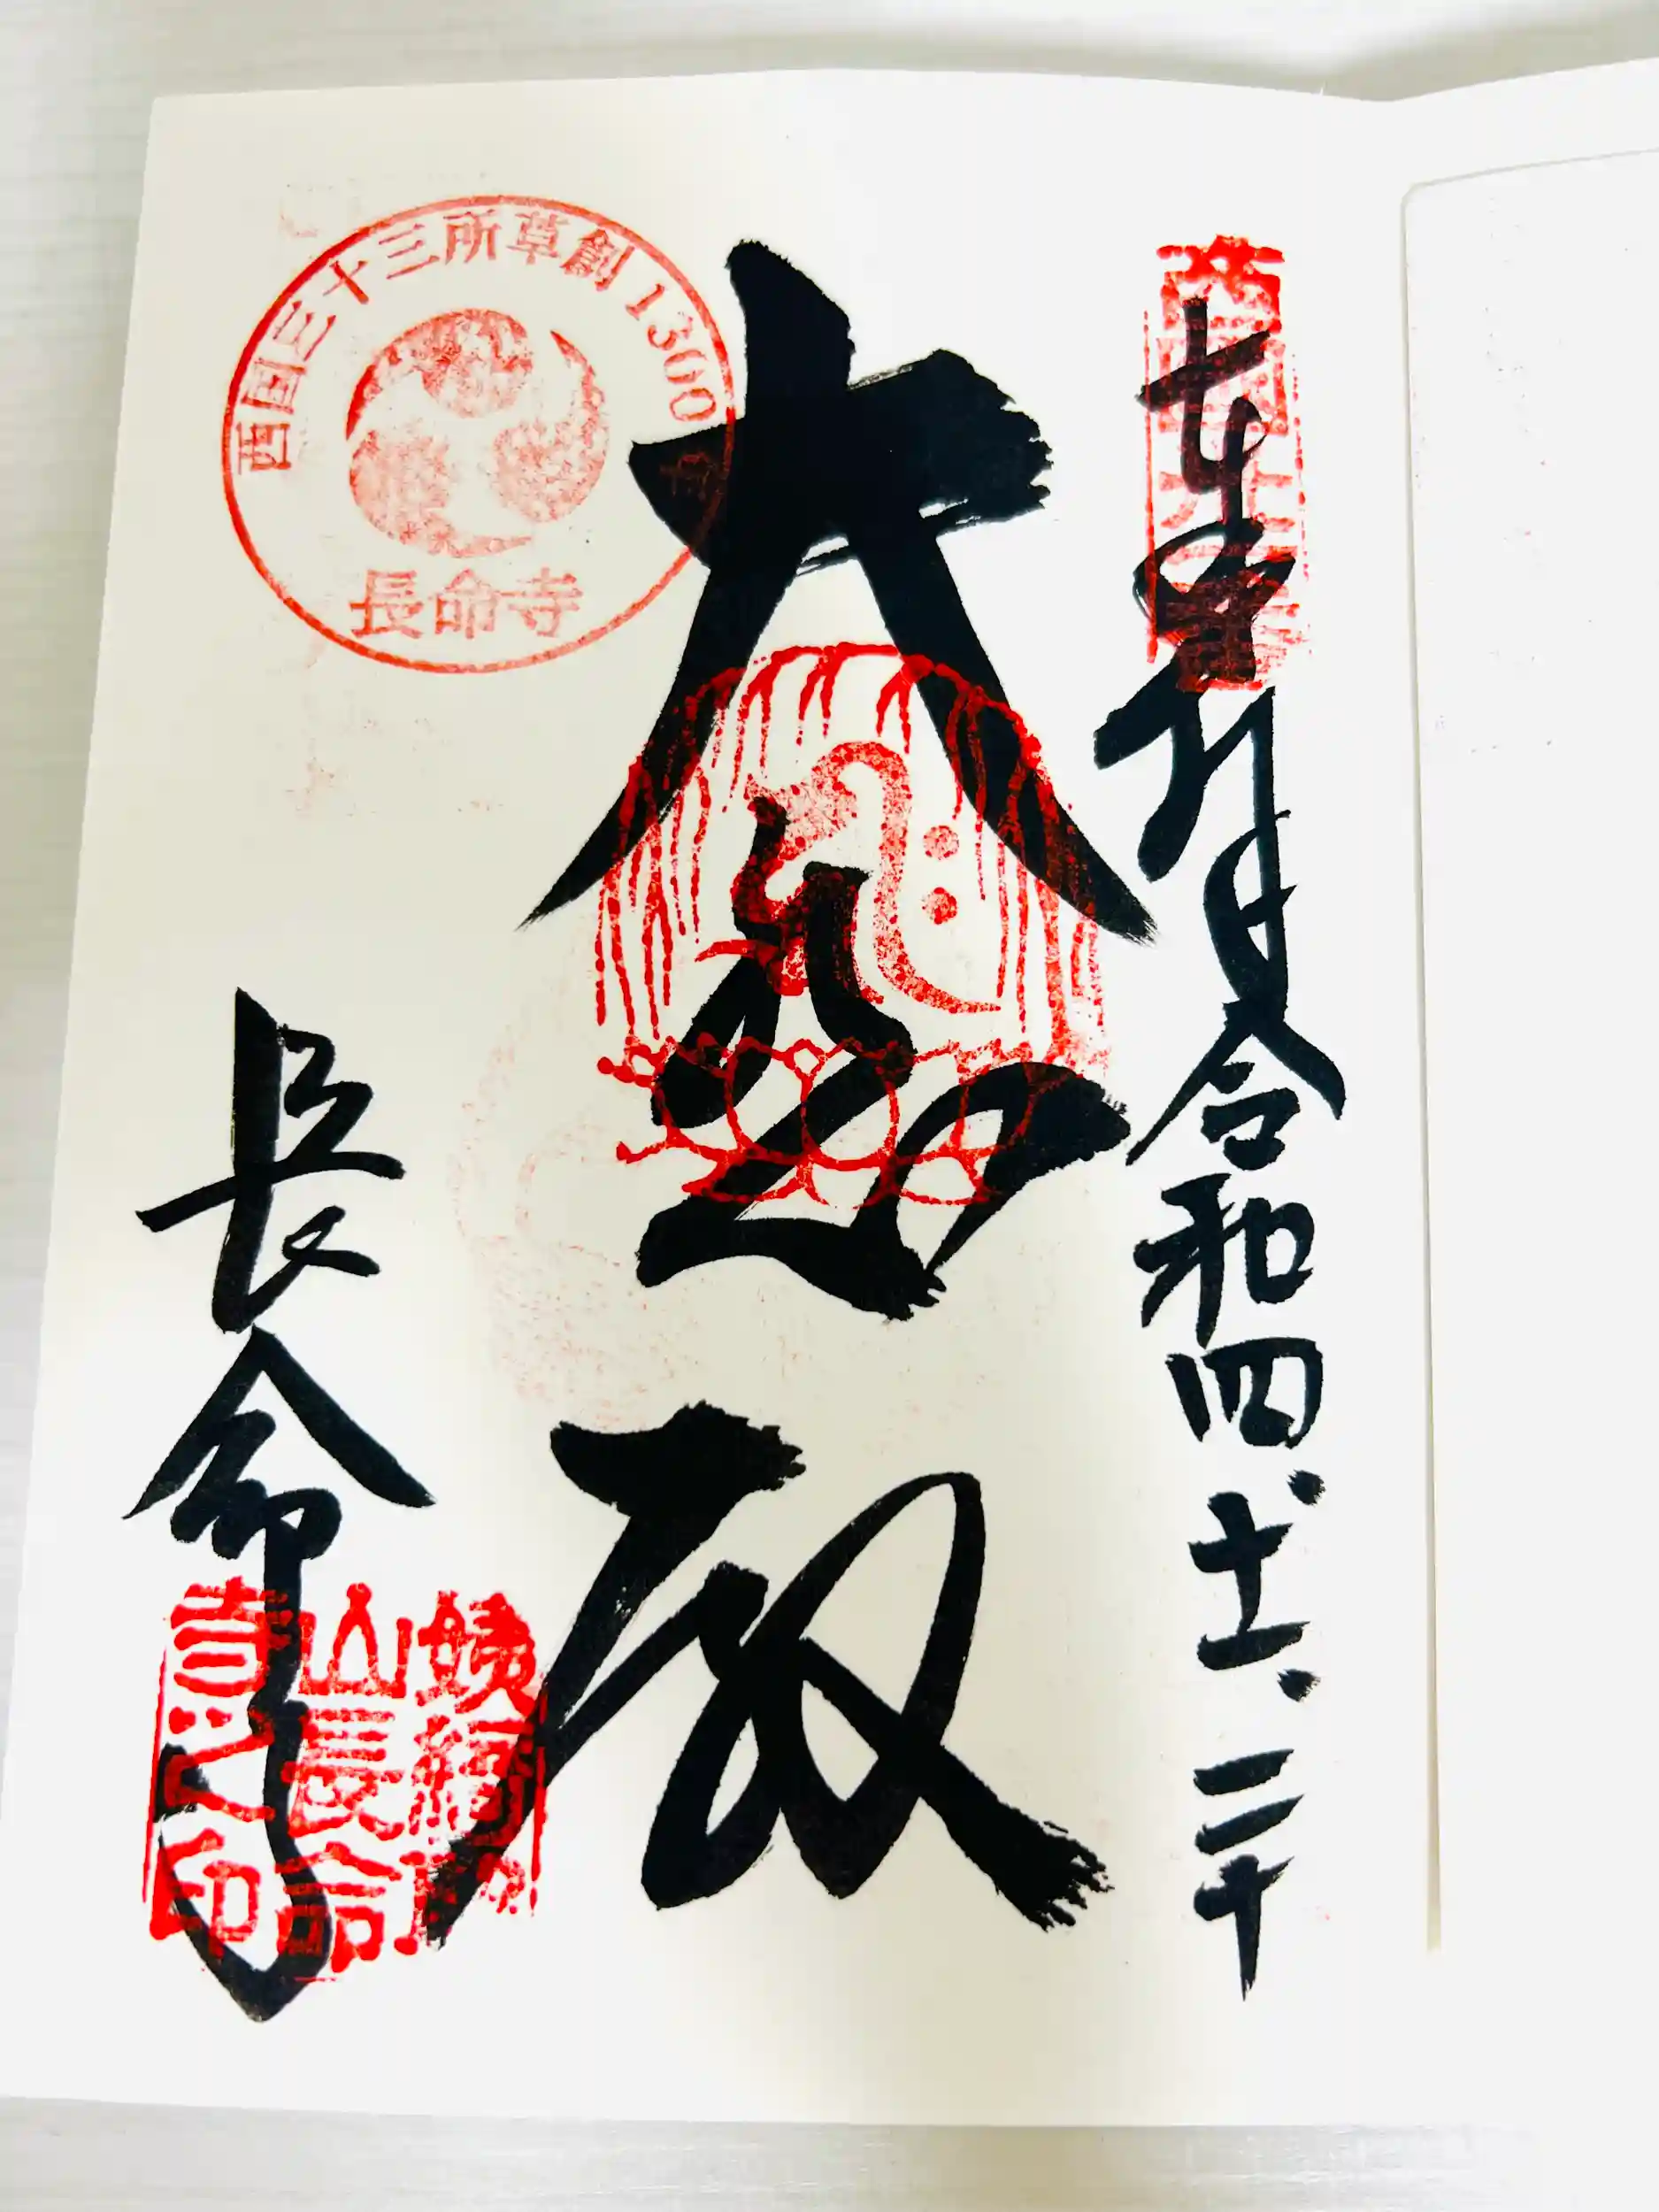 奉拝 令和四、十一、二十
西国三十一番
大悲殿
西国三十三所草創1300
長命寺
長命寺
姨綺耶山長命寺之印